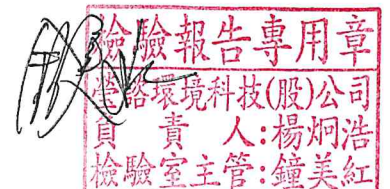 檢驗報告專用章
諮環境科技(股)公司
負責人:楊炯浩
檢驗室主管:鐘美紅